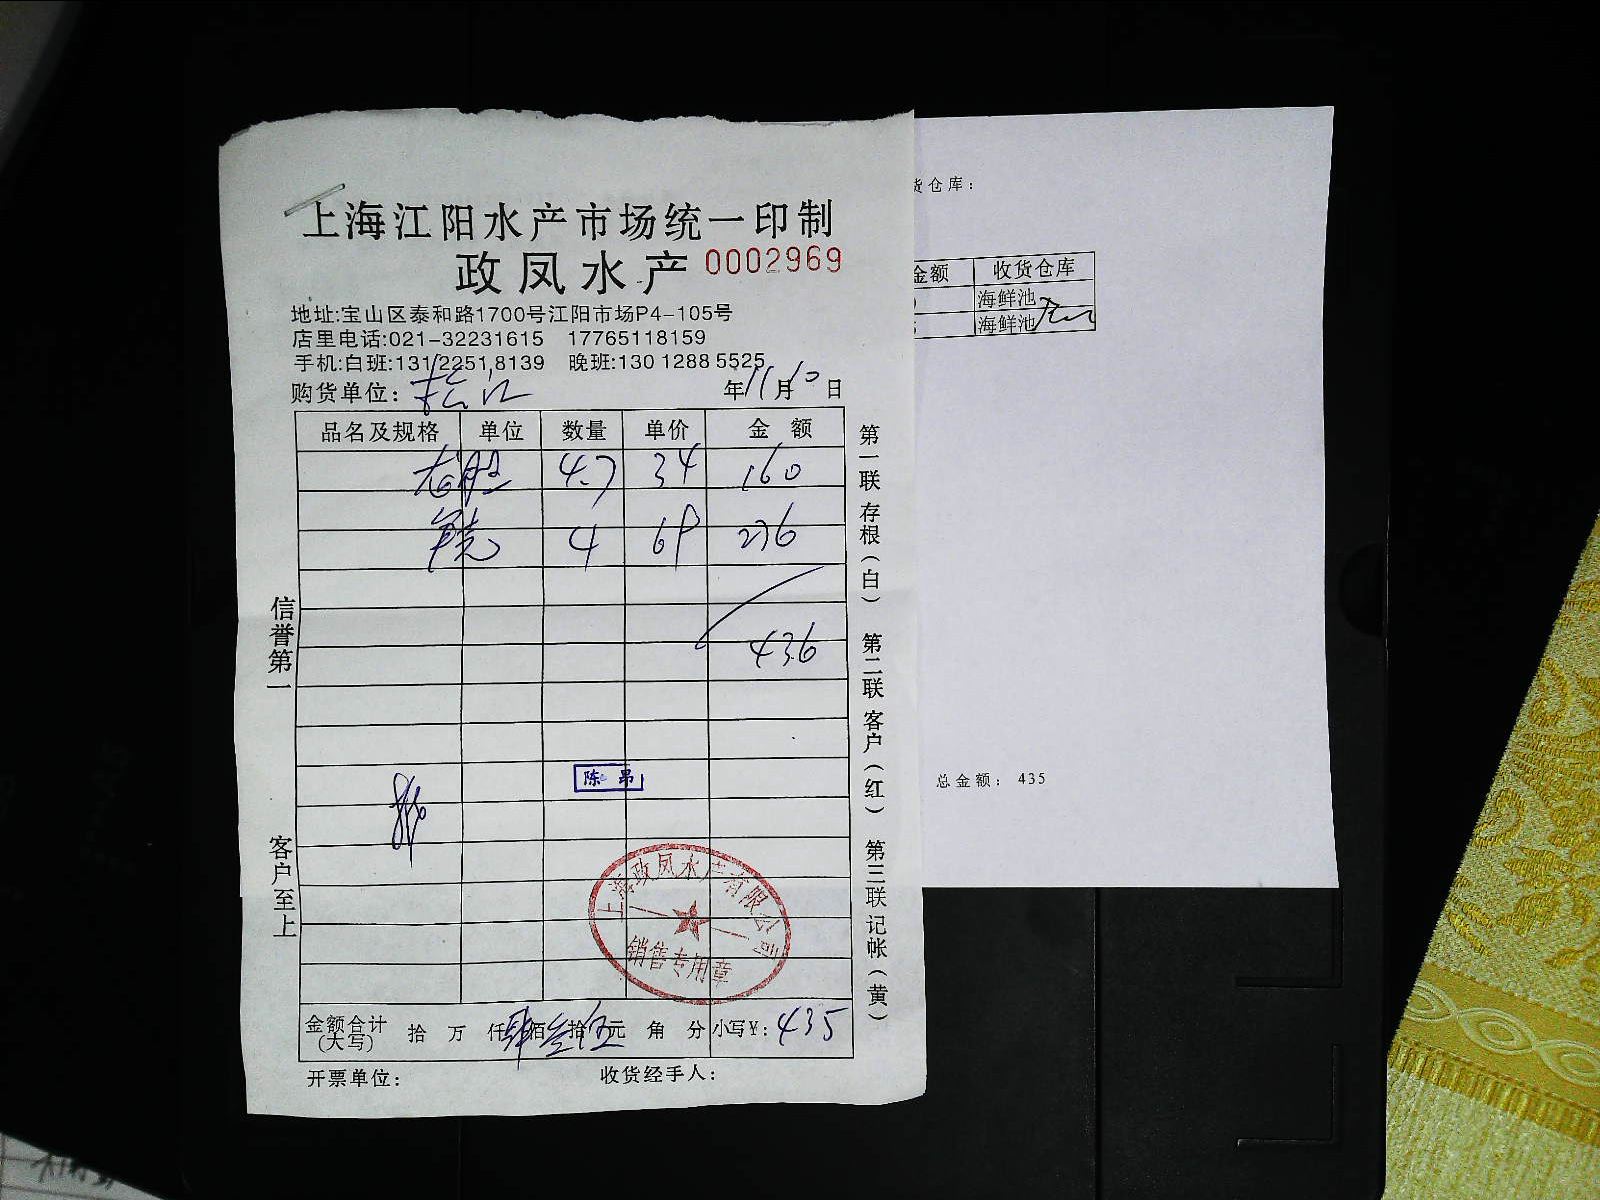 上海江阳水产市场统一印制
政凤水产 0002969
地址:宝山区泰和路1700号江阳市场P4-105号
店里电话:021-32231615 17765118159
手机:白班:131 2251 8139 晚班:130 1288 5525
购货单位: 松江 年 11 月 10 日
品名及规格 单位 数量 单价 金额
4.7 34 160
4 69 276
436
陈昂
上海政凤水产有限公司
销售专用章
金额合计(大写) 拾 万 仟 肆 佰 叁 拾 伍 元 角 分 小写¥: 435
开票单位: 收货经手人:
信誉第一
客户至上
第一联 存根(白) 第二联 客户(红) 第三联 记帐(黄)
货仓库:
金额 收货仓库
海鲜池
海鲜池
总金额: 435